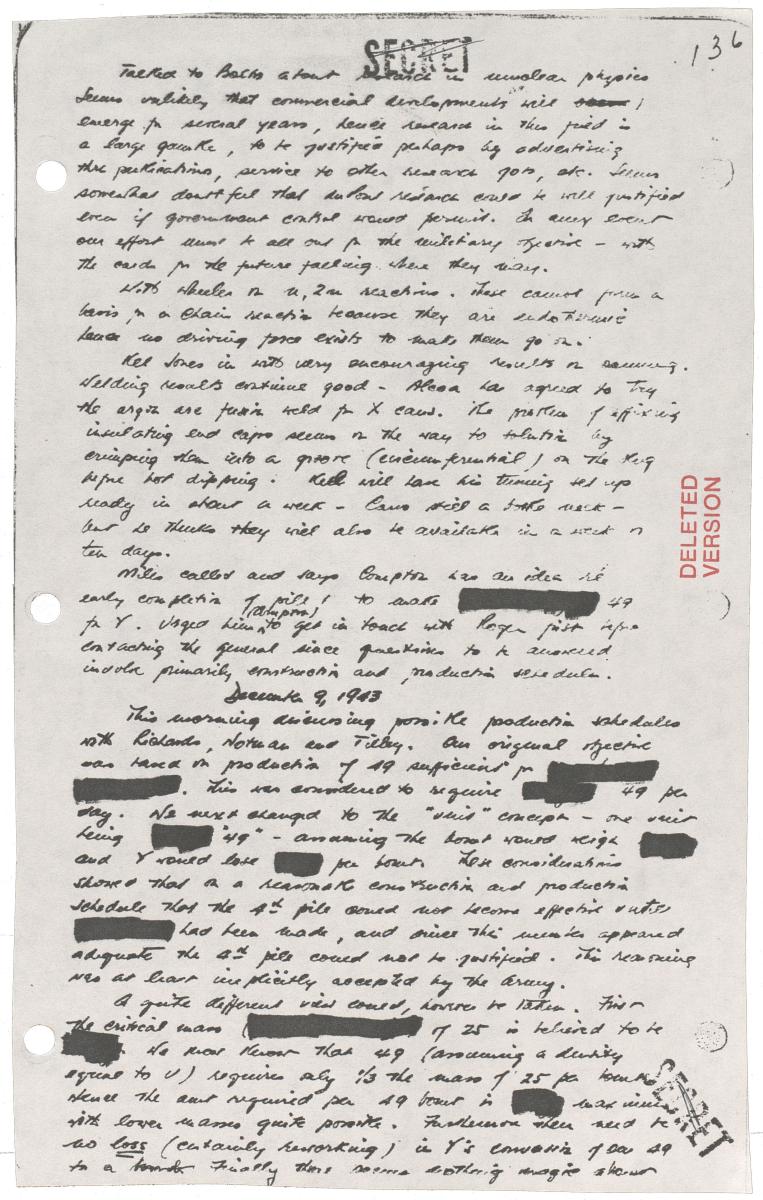 SECRET
136
Talked to Bolto about research in nuclear physics
Seems unlikely that commercial developments will
emerge for several years, hence research in this field is
a large gamble, to be justified perhaps by advertising
thru publications, service to other research gps, etc. Seems
somewhat doubtful that duPont research could be well justified
even if government control would permit. In any event
our effort must be all out for the military objective – with
the cards for the future falling where they may.
With Wheeler on n, 2n reactions. These cannot form a
basis for a chain reaction because they are endothermic
hence no driving force exists to make them go on.
Kel Jones in with very encouraging results on canning.
Welding results continue good – Alcoa has agreed to try
the argon arc fusion weld for X cans. The problem of affixing
insulating end caps seems on the way to solution by
crimping them into a groove (circumferential) on the slug
before hot dipping. Kel will have his turning set up
ready in about a week – Cans still a bottle neck –
but he thinks they will also be available in a week or
ten days.
Miles called and says Compton has an idea re
early completion of pile 1 to make 49
for Y. Urged him (Compton) to get in touch with Roger first before
contacting the general since questions to be answered
involve primarily construction and production schedules.
December 9, 1943
This morning discussing possible production schedules
with Richards, Notman and Tilley. Our original objective
was based on production of 49 sufficient for
. This was considered to require 49 per
day. We next changed to the "unit" concept – one unit
being "49" – assuming the bomb would weigh
and Y would lose per bomb. These considerations
showed that on a reasonable construction and production
schedule that the 4th pile could not become effective until
had been made, and since this number appeared
adequate the 4th pile could not be justified. This reasoning
was at least implicitly accepted by the Army.
A quite different view could, however be taken. First
the critical mass ( of 25 is believed to be
. We now know that 49 (assuming a density
equal to U) requires only 1/3 the mass of 25 per bomb
Hence the amt required per 49 bomb is maximum
with lower masses quite possible. Furthermore there need be
no loss (certainly reworking) in Y's conversion of our 49
to a bomb. Finally there seems nothing magic about
DELETED
VERSION
SECRET